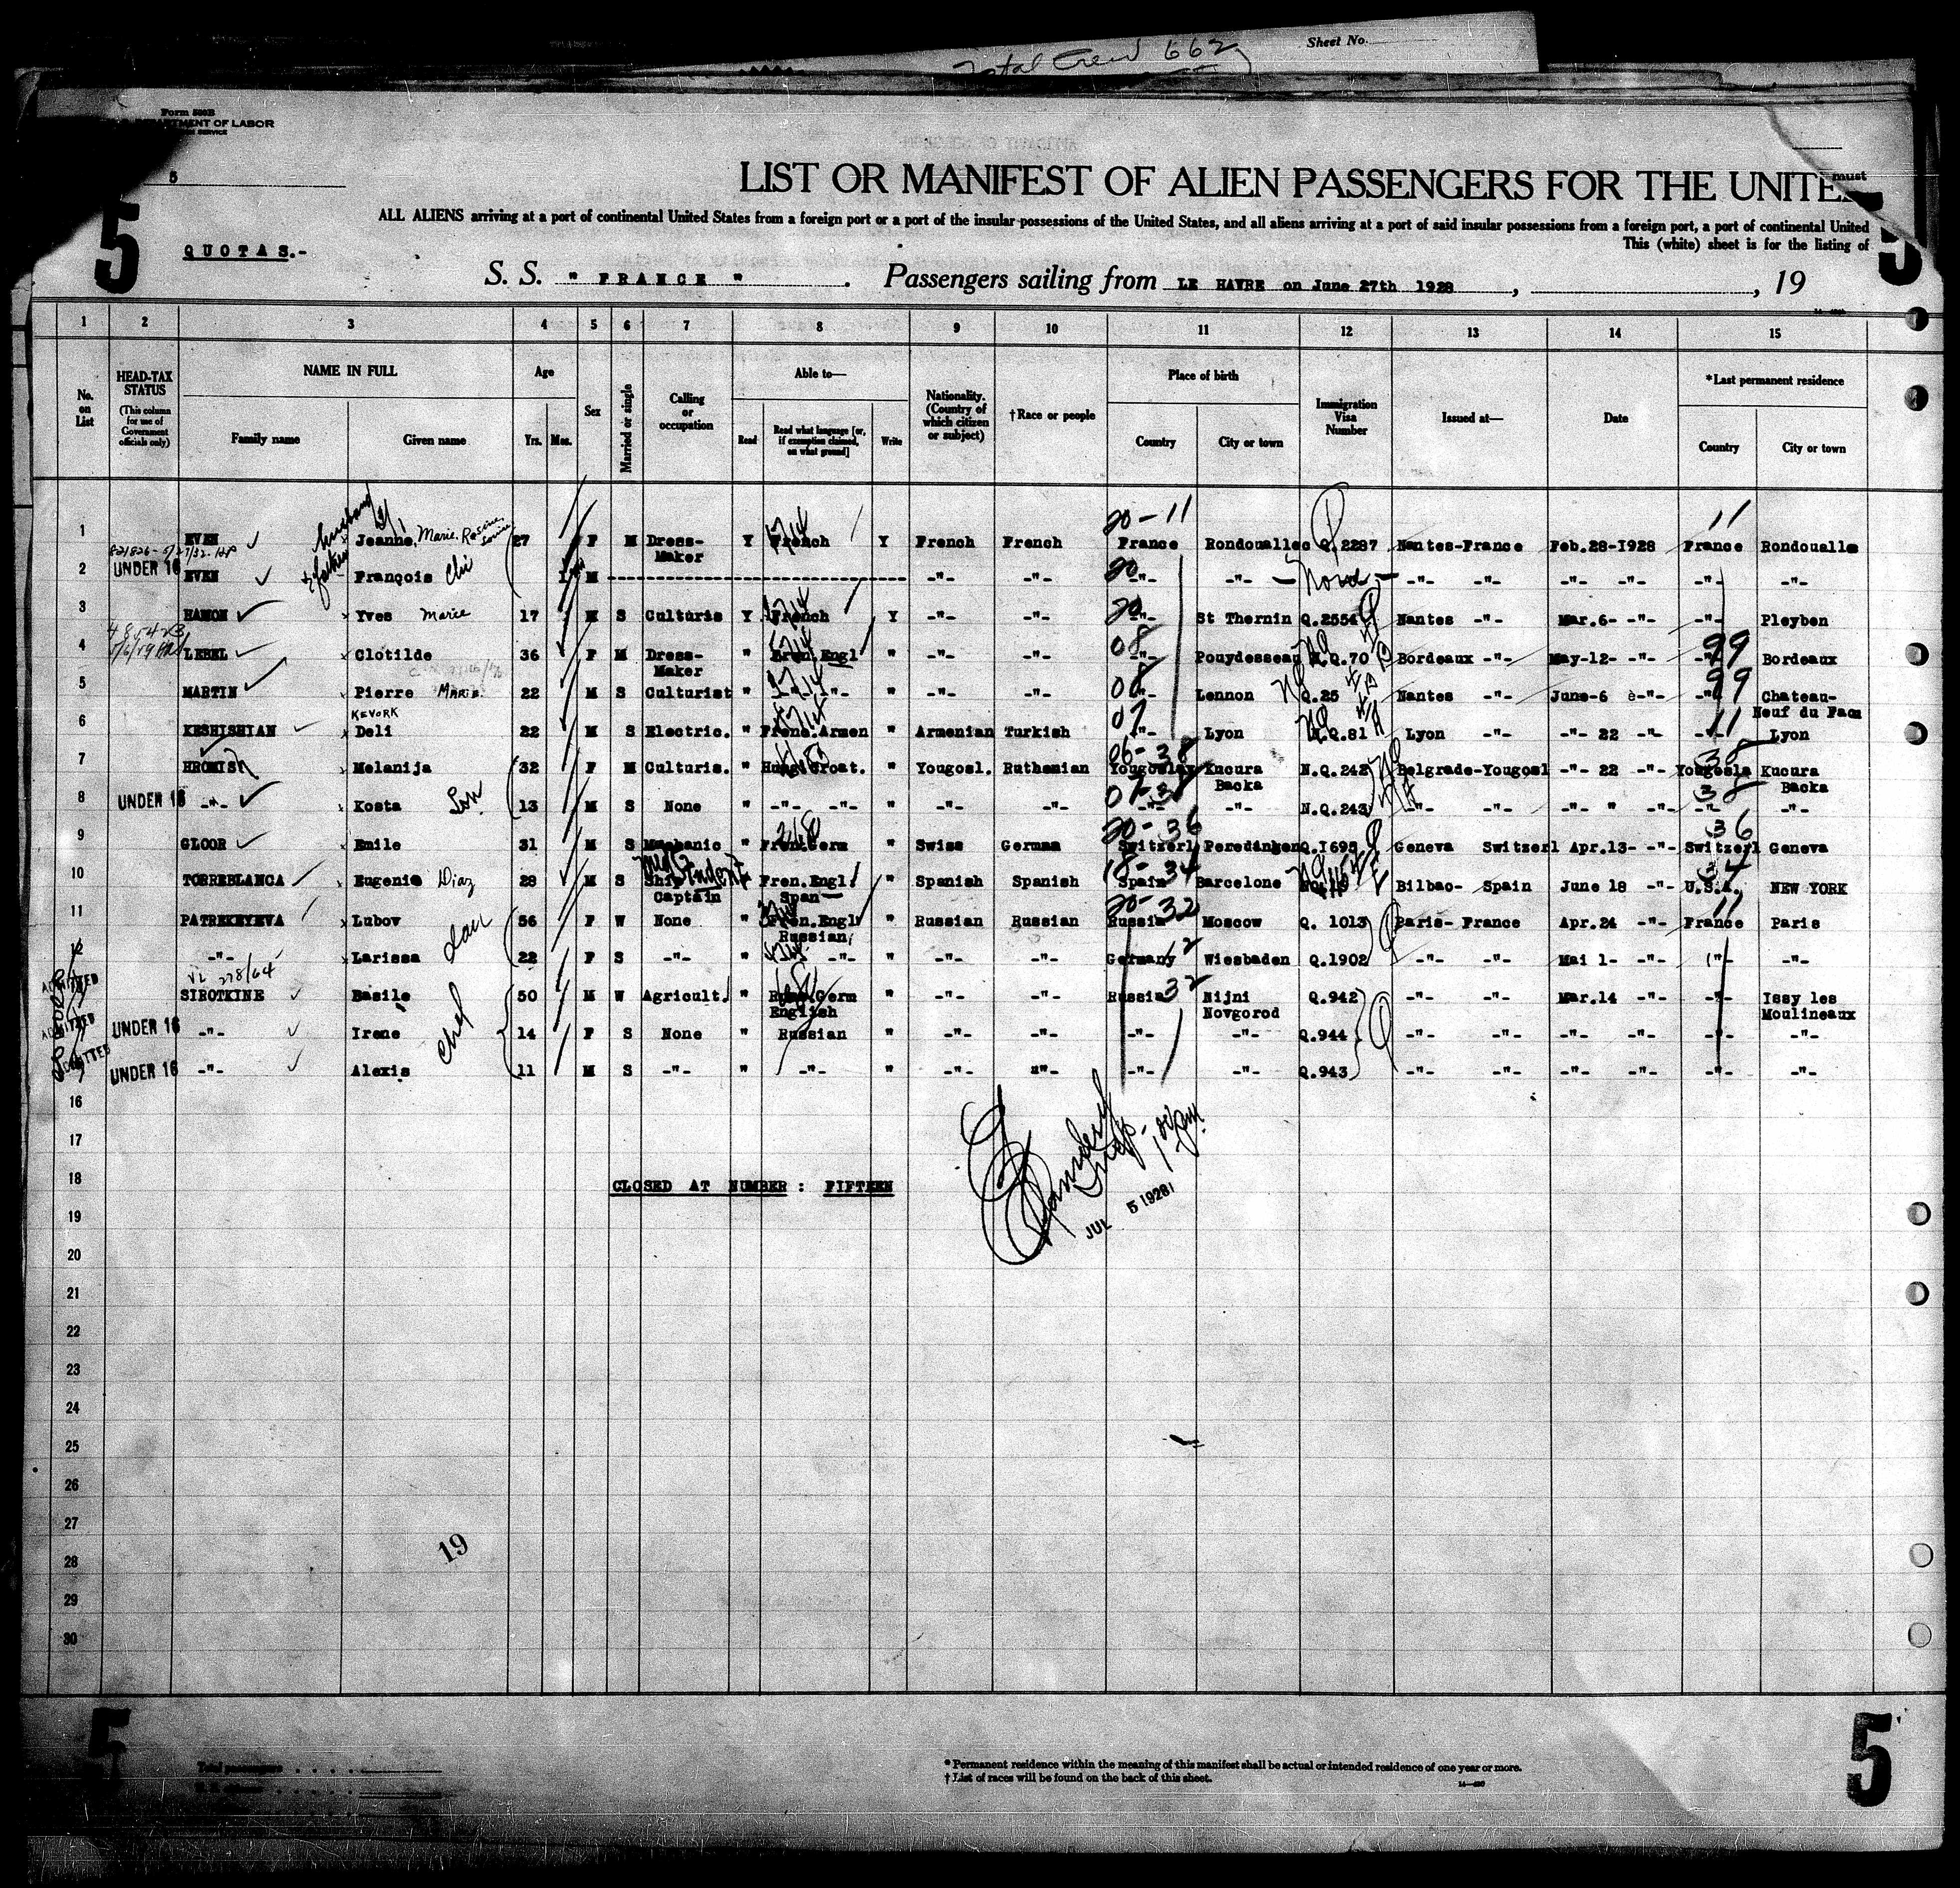 Total Crew 662
Sheet No.
Form 500B
DEPARTMENT OF LABOR
5
LIST OR MANIFEST OF ALIEN PASSENGERS FOR THE UNITE
must
ALL ALIENS arriving at a port of continental United States from a foreign port or a port of the insular possessions of the United States, and all aliens arriving at a port of said insular possessions from a foreign port, a port of continental United
This (white) sheet is for the listing of
5
5
QUOTAS.-
S. S. " FRANCE " . Passengers sailing from LE HAVRE on June 27th 1928 , , 19
1 2 3 4 5 6 7 8 9 10 11 12 13 14 15
No. on List
HEAD-TAX STATUS (This column for use of Government officials only)
NAME IN FULL Family name Given name
Age Yrs. Mos.
Sex
Married or single
Calling or occupation
Able to— Read Read what language [or, if exemption claimed, on what ground] Write
Nationality. (Country of which citizen or subject)
†Race or people
Place of birth Country City or town
Immigration Visa Number
Issued at—
Date
*Last permanent residence Country City or town
20-11 11
1 EVEN Jeanne, Marie 27 F M Dress-Maker Y French Y French French France Rondouallec Q.2287 Nantes-France Feb.28-1928 France Rondoualle
821826-5/27/32
2 UNDER 16 EVEN François M -"- -"- 20 -"- -"- None -"- -"- -"- -"- -"- -"-
3 HAMON Yves Marie 17 M S Culturis Y French Y -"- -"- 20 -"- St Thernin Q.2554 Nantes -"- Mar.6- -"- -"- Pleyben
4 LEBEL Clotilde 36 F M Dress-Maker " Fren.Engl " -"- -"- 08 -"- Pouydesseau N.Q.70 Bordeaux -"- May-12- -"- 99 -"- Bordeaux
5 MARTIN Pierre Marie 22 M S Culturist " -"- -"- " -"- -"- -"- Lennon Q.25 Nantes -"- June-6 -"- 99 -"- Chateau-Neuf du Faou
KEVORK
6 KESHISHIAN Deli 22 M S Electric. " Frenc.Armen " Armenian Turkish 07 -"- Lyon N.Q.81 Lyon -"- -"- 22 -"- 11 -"- Lyon
7 HROMIS Melanija 32 F M Culturis. " Hung.Croat. " Yougosl. Ruthenian 06-38 Yougoslav Kucura Backa N.Q.242 Belgrade-Yougosl -"- 22 -"- 38 Yougosla Kucura Backa
8 UNDER 16 -"- Kosta Son 13 M S None " -"- -"- " -"- -"- 07-38 -"- -"- N.Q.243 -"- -"- -"- " -"- 38 -"- -"-
9 GLOOR Emile 31 M S Mechanic " Fren.Germ " Swiss German 20-36 Switzerl Peredingen Q.1695 Geneva Switzerl Apr.13- -"- 36 Switzerl Geneva
10 TORREBLANCA Eugenio Diaz 28 M S Ship Captain " Fren.Engl. Span " Spanish Spanish 18-34 Spain Barcelone Bilbao- Spain June 18 -"- 34 U.S.A. NEW YORK
11 PATREKEYEVA Lubov 56 F W None " Fren.Engl Russian, " Russian Russian 20-32 Russia Moscow Q. 1013 Paris- France Apr.24 -"- 11 France Paris
12 -"- Larissa dau 22 F S -"- " -"- " -"- -"- Germany 12 Wiesbaden Q.1902 -"- -"- Mai 1- -"- -"- -"-
VL 278/64
ADMITTED SIROTKINE Basile 50 M W Agricult. " Russ.Germ English " -"- -"- Russia 32 Nijni Novgorod Q.942 -"- -"- Mar.14 -"- -"- Issy les Moulineaux
ADMITTED UNDER 16 -"- Irene 14 F S None " Russian " -"- -"- -"- -"- Q.944 -"- -"- -"- -"- -"- -"-
ADMITTED UNDER 16 -"- Alexis 11 M S -"- " -"- " -"- "- -"- -"- Q.943 -"- -"- -"- -"- -"- -"-
16
17
18 CLOSED AT NUMBER : FIFTEEN
JUL 5 1928
19
20
21
22
23
24
25
26
27
19
28
29
30
5
5
Total passengers
* Permanent residence within the meaning of this manifest shall be actual or intended residence of one year or more.
† List of races will be found on the back of this sheet.